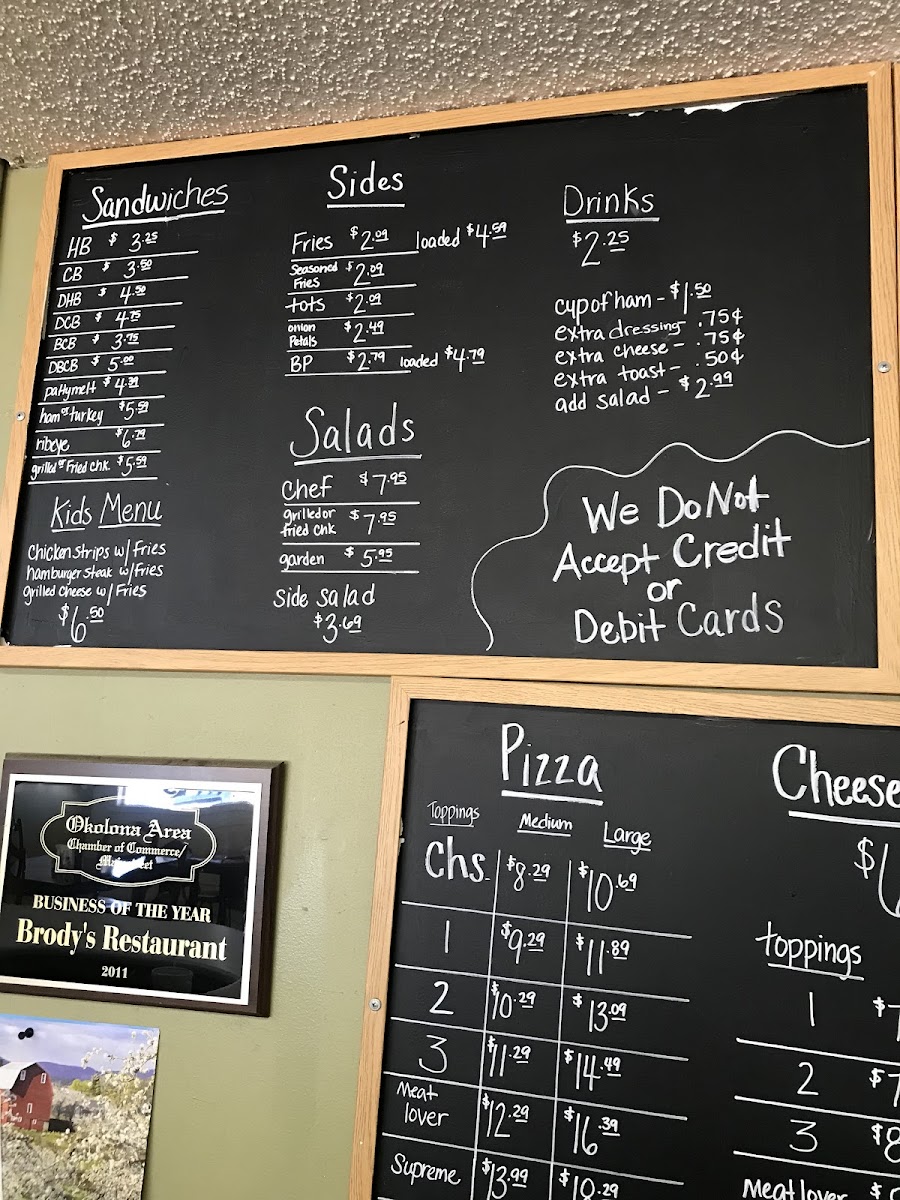 Sandwiches
HB $3.25
CB $3.50
DHB $4.50
DCB $4.75
BCB $3.75
DBCB $5.00
patty melt $4.39
ham or turkey $5.59
ribeye $6.79
grilled or Fried chk. $5.59
Kids Menu
Chicken strips w/ Fries
hamburger steak w/ Fries
Grilled cheese w/ Fries
$6.50
Sides
Fries $2.09 loaded $4.59
Seasoned Fries $2.09
tots $2.09
onion Petals $2.49
BP $2.79 loaded $4.79
Salads
Chef $7.95
grilled or fried chk $7.95
garden $5.95
Side Salad
$3.69
Drinks
$2.25
cup of ham - $1.50
extra dressing .75¢
extra cheese - .75¢
extra toast - .50¢
add salad - $2.99
We Do Not
Accept Credit
or
Debit Cards
Pizza
Toppings Medium Large
Chs. $8.29 $10.69
1 $9.29 $11.89
2 $10.29 $13.09
3 $11.29 $14.49
Meat lover $12.29 $16.39
Supreme $13.99 $18.29
Cheese
$
toppings
1 $
2 $7
3 $8
Meat lover $
Okolona Area
Chamber of Commerce/
Main Street
BUSINESS OF THE YEAR
Brody's Restaurant
2011